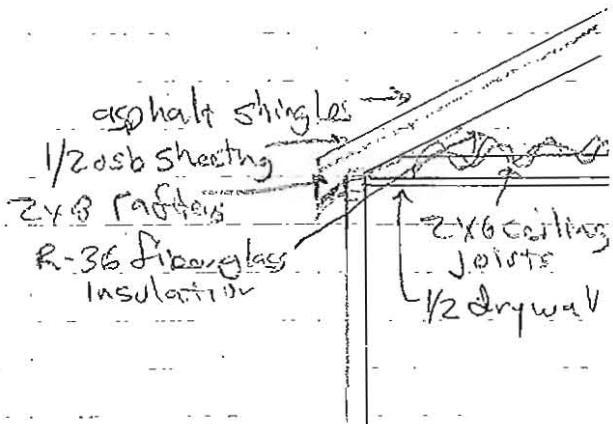 asphalt shingles
1/2 osb sheeting
2x8 rafters
R-36 fiberglass
Insulation
2x6 ceiling
joists
1/2 drywall